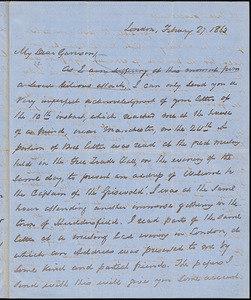 London, February 27, 1863
My Dear Garrison,—
As I am suffering at this moment from
a severe bilious attack, I can only send you a
very imperfect acknowledgment of your letter of
the 10th instant, which reached me at the house
of a friend, near Manchester, on the 24th. A
portion of that letter was read at the great meeting
held in the Free Trade Hall, on the evening of the
same day, to present an address of welcome to
the Captain of the Griswold. I was at the same
hour attending another immense gathering in the
town of Huddersfield. I read part of the same
letter at a meeting last evening in London, at
which an Address was presented to me by
some kind and partial friends. The papers I
send with this will give you some account